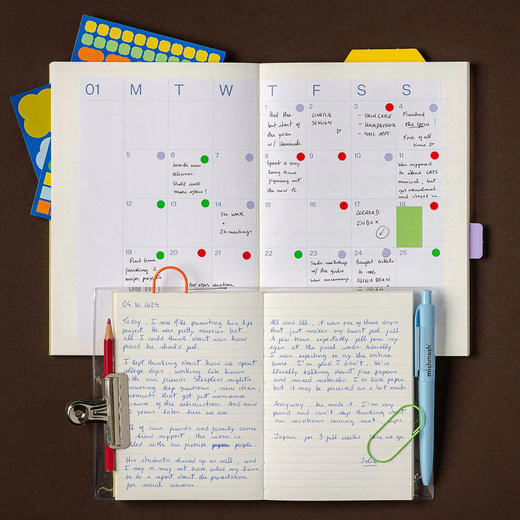 01 M T W T F S S
1
Had the
best start of
the year
w/ thousands.
2
CINEMA
SESSION
3
- SKIN CARE
- HAIRDRESSER
- NAIL APPT.
4
Finished
the !
Fave of all
time
5
6
Lunch was
delicious.
Should cook
more often!
7
8
Spent a very
long time
figuring out
the new PC.
9
10
11
Was supposed
to attend CATS
musical, but
got and
stayed in.
12
13
14
1h work
+
2h meetings
15
16
17
CLEARED
INBOX
18
19
Finished
major
20
21
22
23
Sushi
w/ the girls
was necessary
24
Bought tickets
to see
25
04.10.2025
Today, I saw Mike presenting his life
project. He was pretty nervous but
all I could think about was how
proud he should feel.
I kept thinking about how we spent
college days, working late hours
with our friends. Sleepless nights
new ideas,
that got just
cause of the exhaustion. And now
years later here we are.
ll of our friends and family came
show support, the room is
lled with our favorite people.
His students showed up as well, and
I may or may not have asked my
to do a report about the presentation
for several reasons.
All and all, it was one of those days
that just makes my heart feel full.
A few tears fell from my
eyes at the final words. Actually
I was expecting to cry the entire
time. I'm glad I didn't. He's
literally talking about fine papers
and mixed materials. I do love paper
but it may be perceived as a bit much.
Anyway, he made it. I'm very
proud and can't stop thinking about
our vacations coming next.
Japan for 3 full weeks here we go.
mishmash